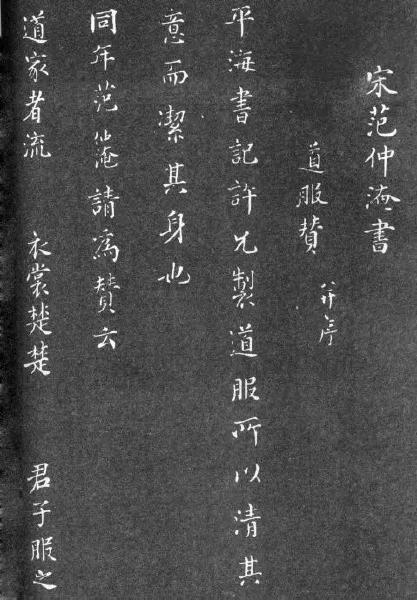 宋范仲淹書
道服贊 并序
平海書記許兄製道服所以清其
意而潔其身也
同年范仲淹請為贊云
道家者流 衣裳楚楚 君子服之